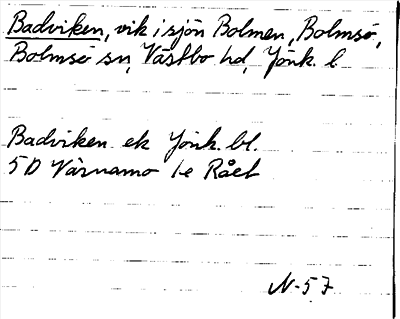 Badviken, vik i sjön Bolmen, Bolmsö,
Bolmsö sn, Västbo hd, Jönk. l.
Badviken ek Jönk. bl.
5D Värnamo 1e Råel
N-57